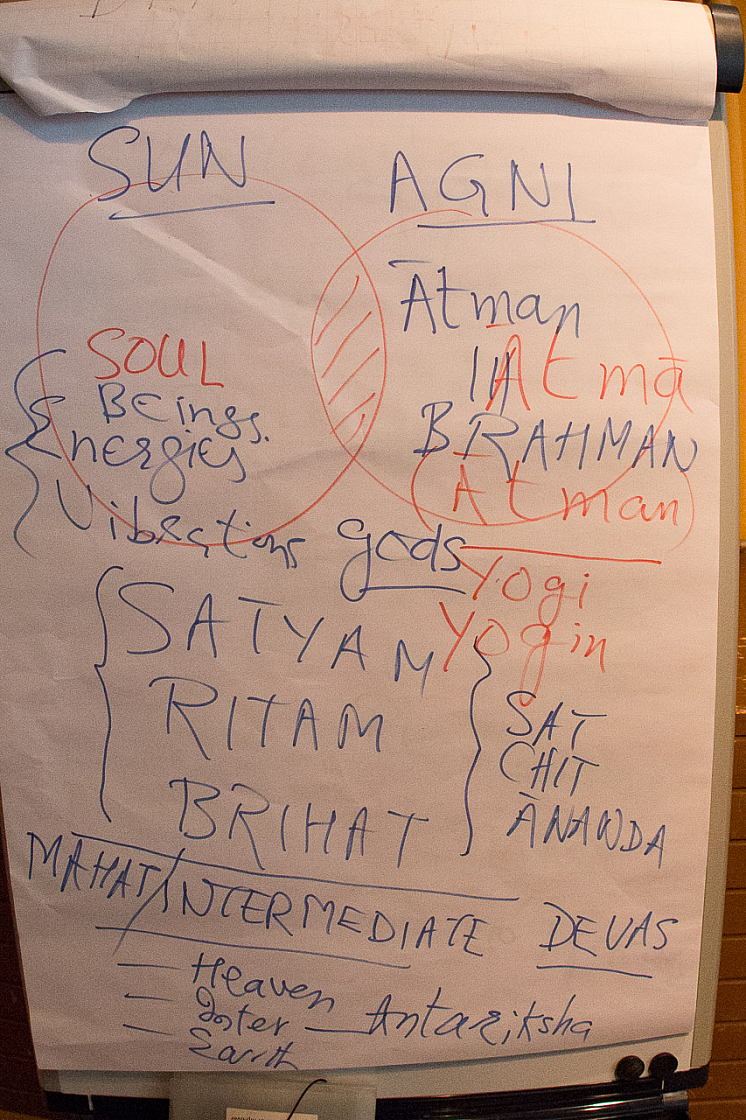 SUN
AGNI
Ātman
Atmā
BRAHMAN
Atman
SOUL
Beings.
Energies
Vibrations gods
Yogi
Yogin
SATYAM
RITAM
BRIHAT
SAT
CHIT
ĀNANDA
MAHAT/INTERMEDIATE DEVAS
— Heaven
— Inter — Antariksha
— Earth